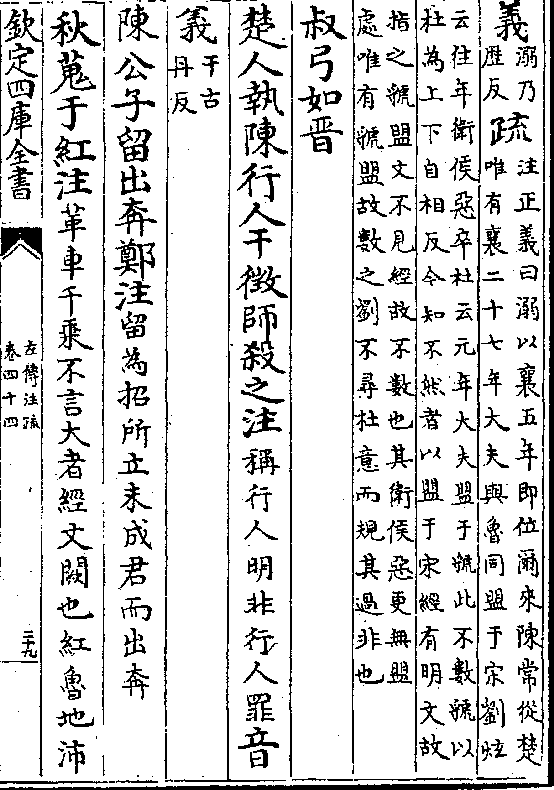 義溺乃
歴反疏注正義曰溺以襄五年即位爾來陳常從楚
唯有襄二十七年大夫與魯同盟于宋劉炫
云往年衛侯惡卒杜云元年大夫盟于虢此不數虢以
杜為上下自相反今知不然者以盟于宋經有明文故
指之虢盟文不見經故不數也其衛侯惡更無盟
處唯有虢盟故數之劉不尋杜意而規其過非也
叔弓如晋
楚人執陳行人干徴師殺之注稱行人明非行人罪音
義干古
丹反
陳公子留出奔鄭注留為招所立未成君而出奔
秋蒐于紅注革車千乗不言大者經文闕也紅魯地沛
欽定四庫全書
左傳注疏
卷四十四
二十九